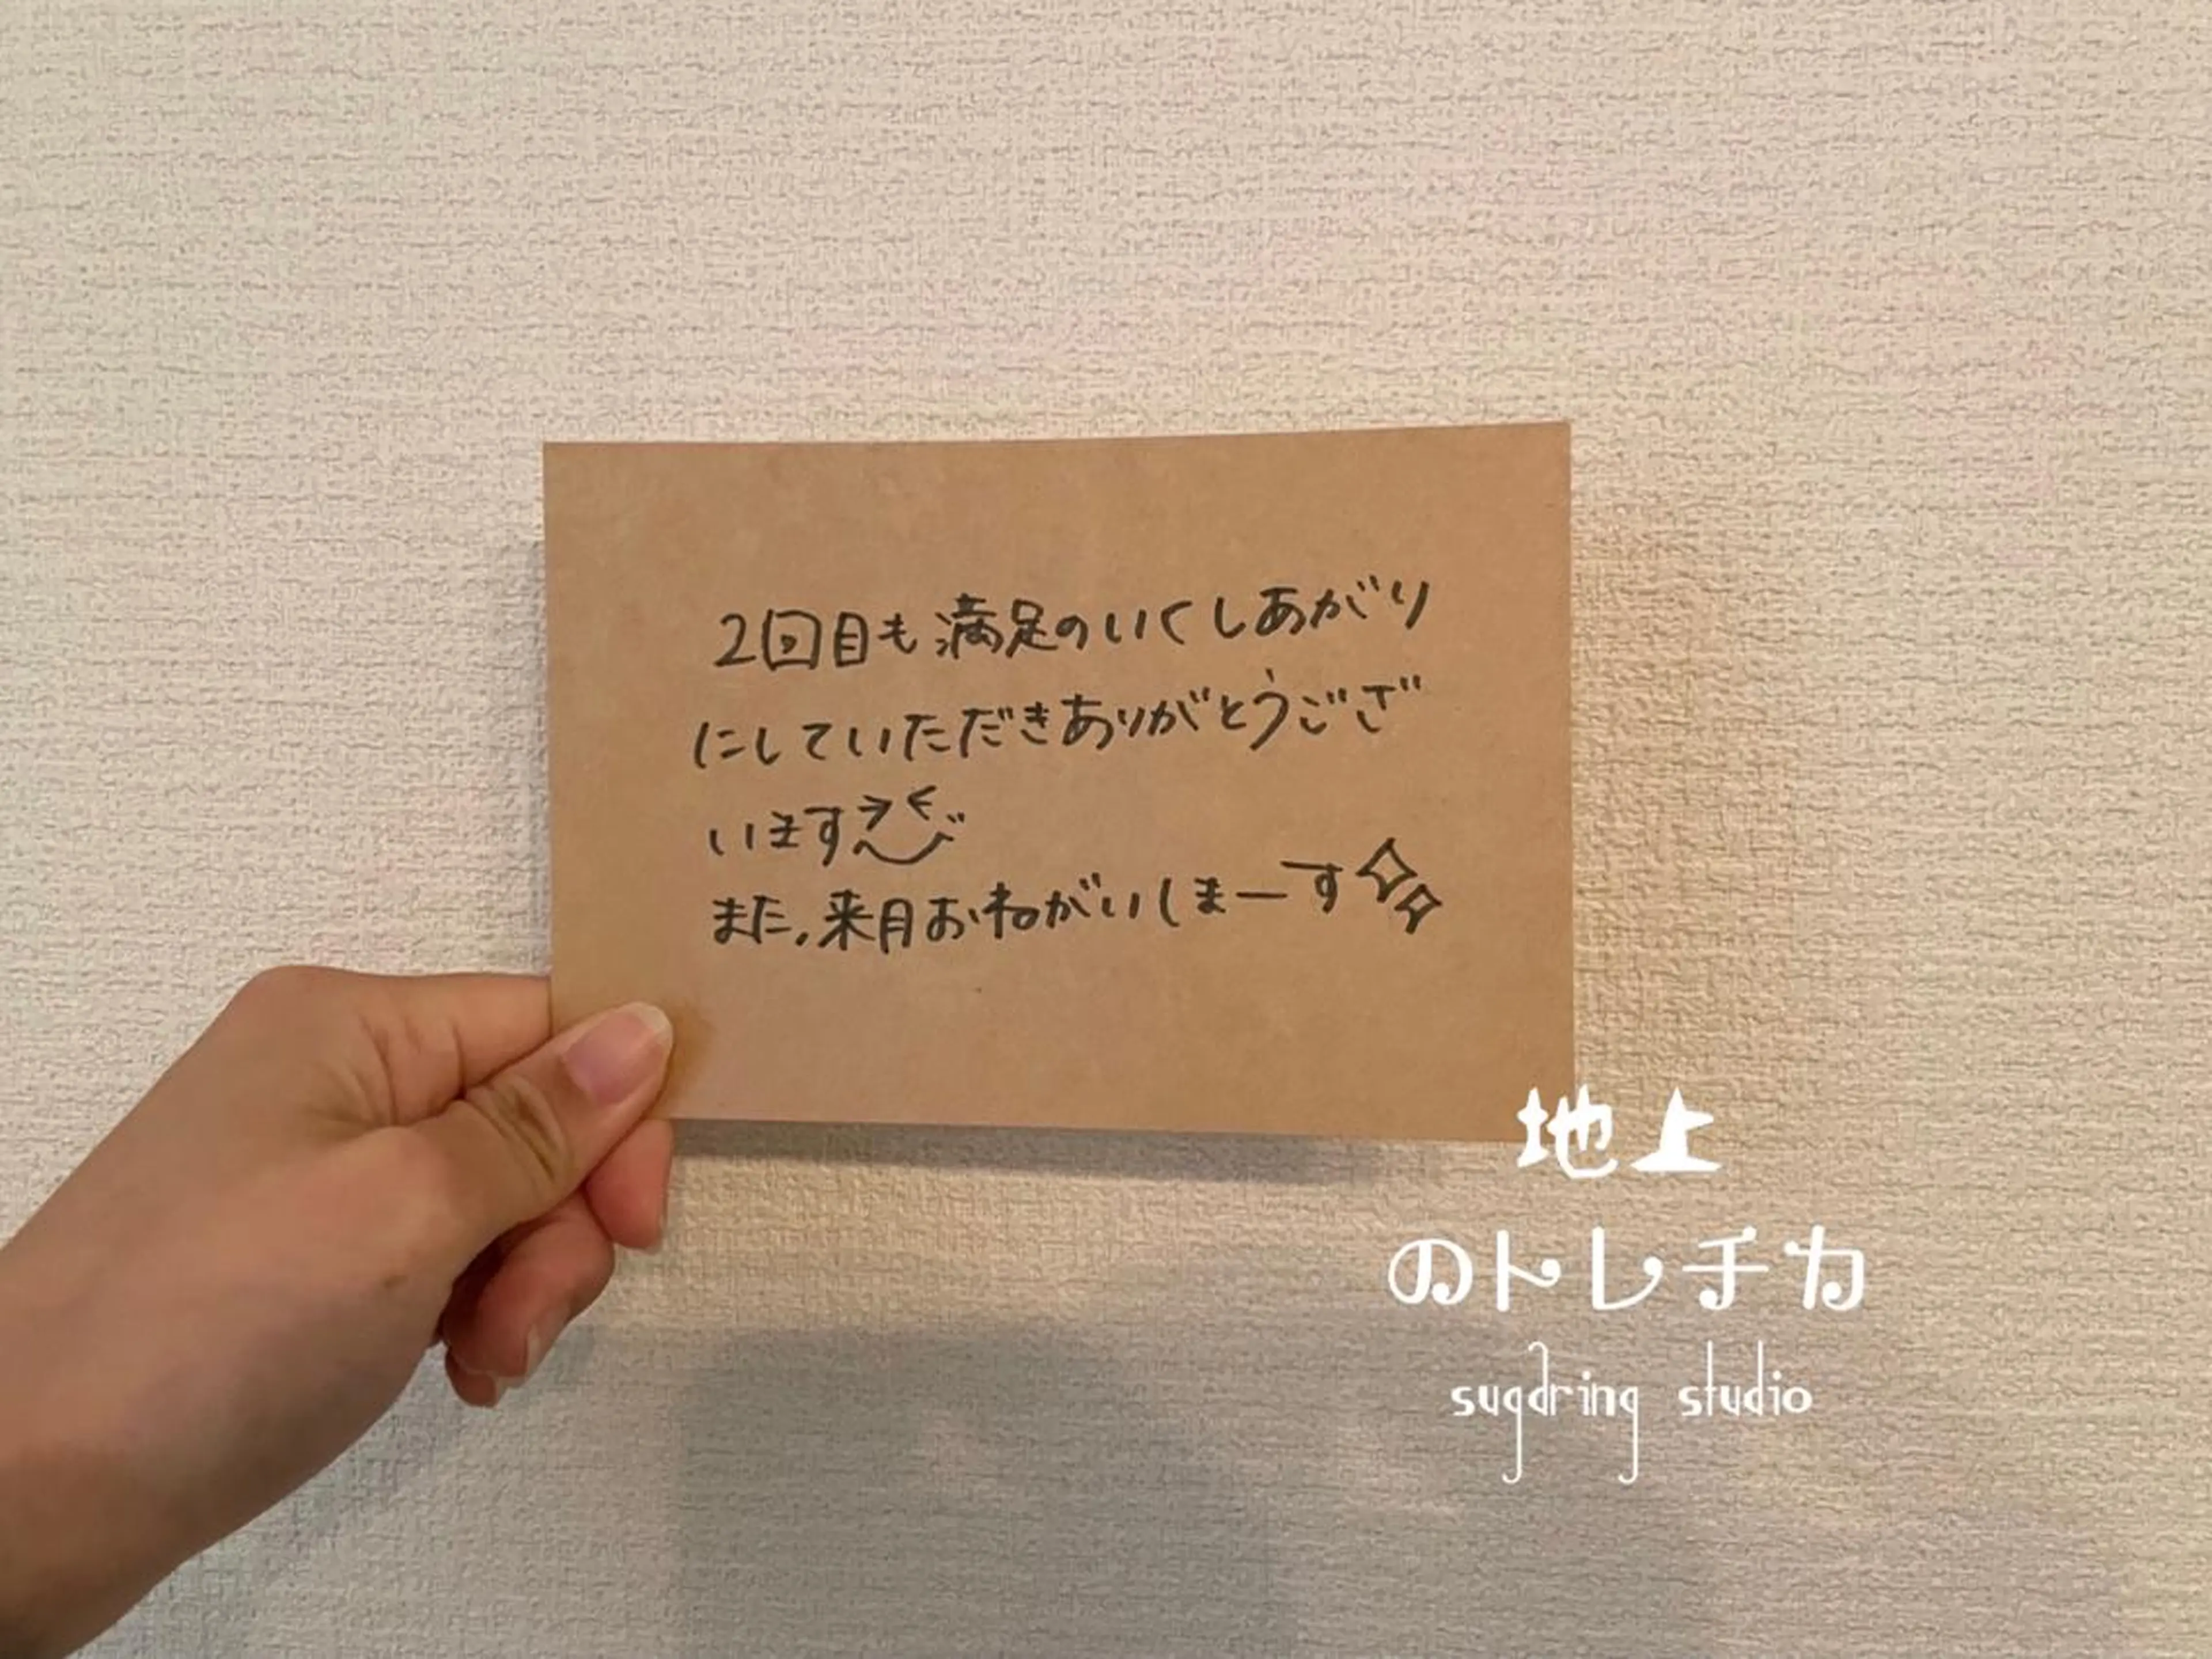 2回目も満足のいくしあがり
にしていただきありがとうござ
います
また、来月おねがいしまーす
地上
のトレチカ
sugdring studio